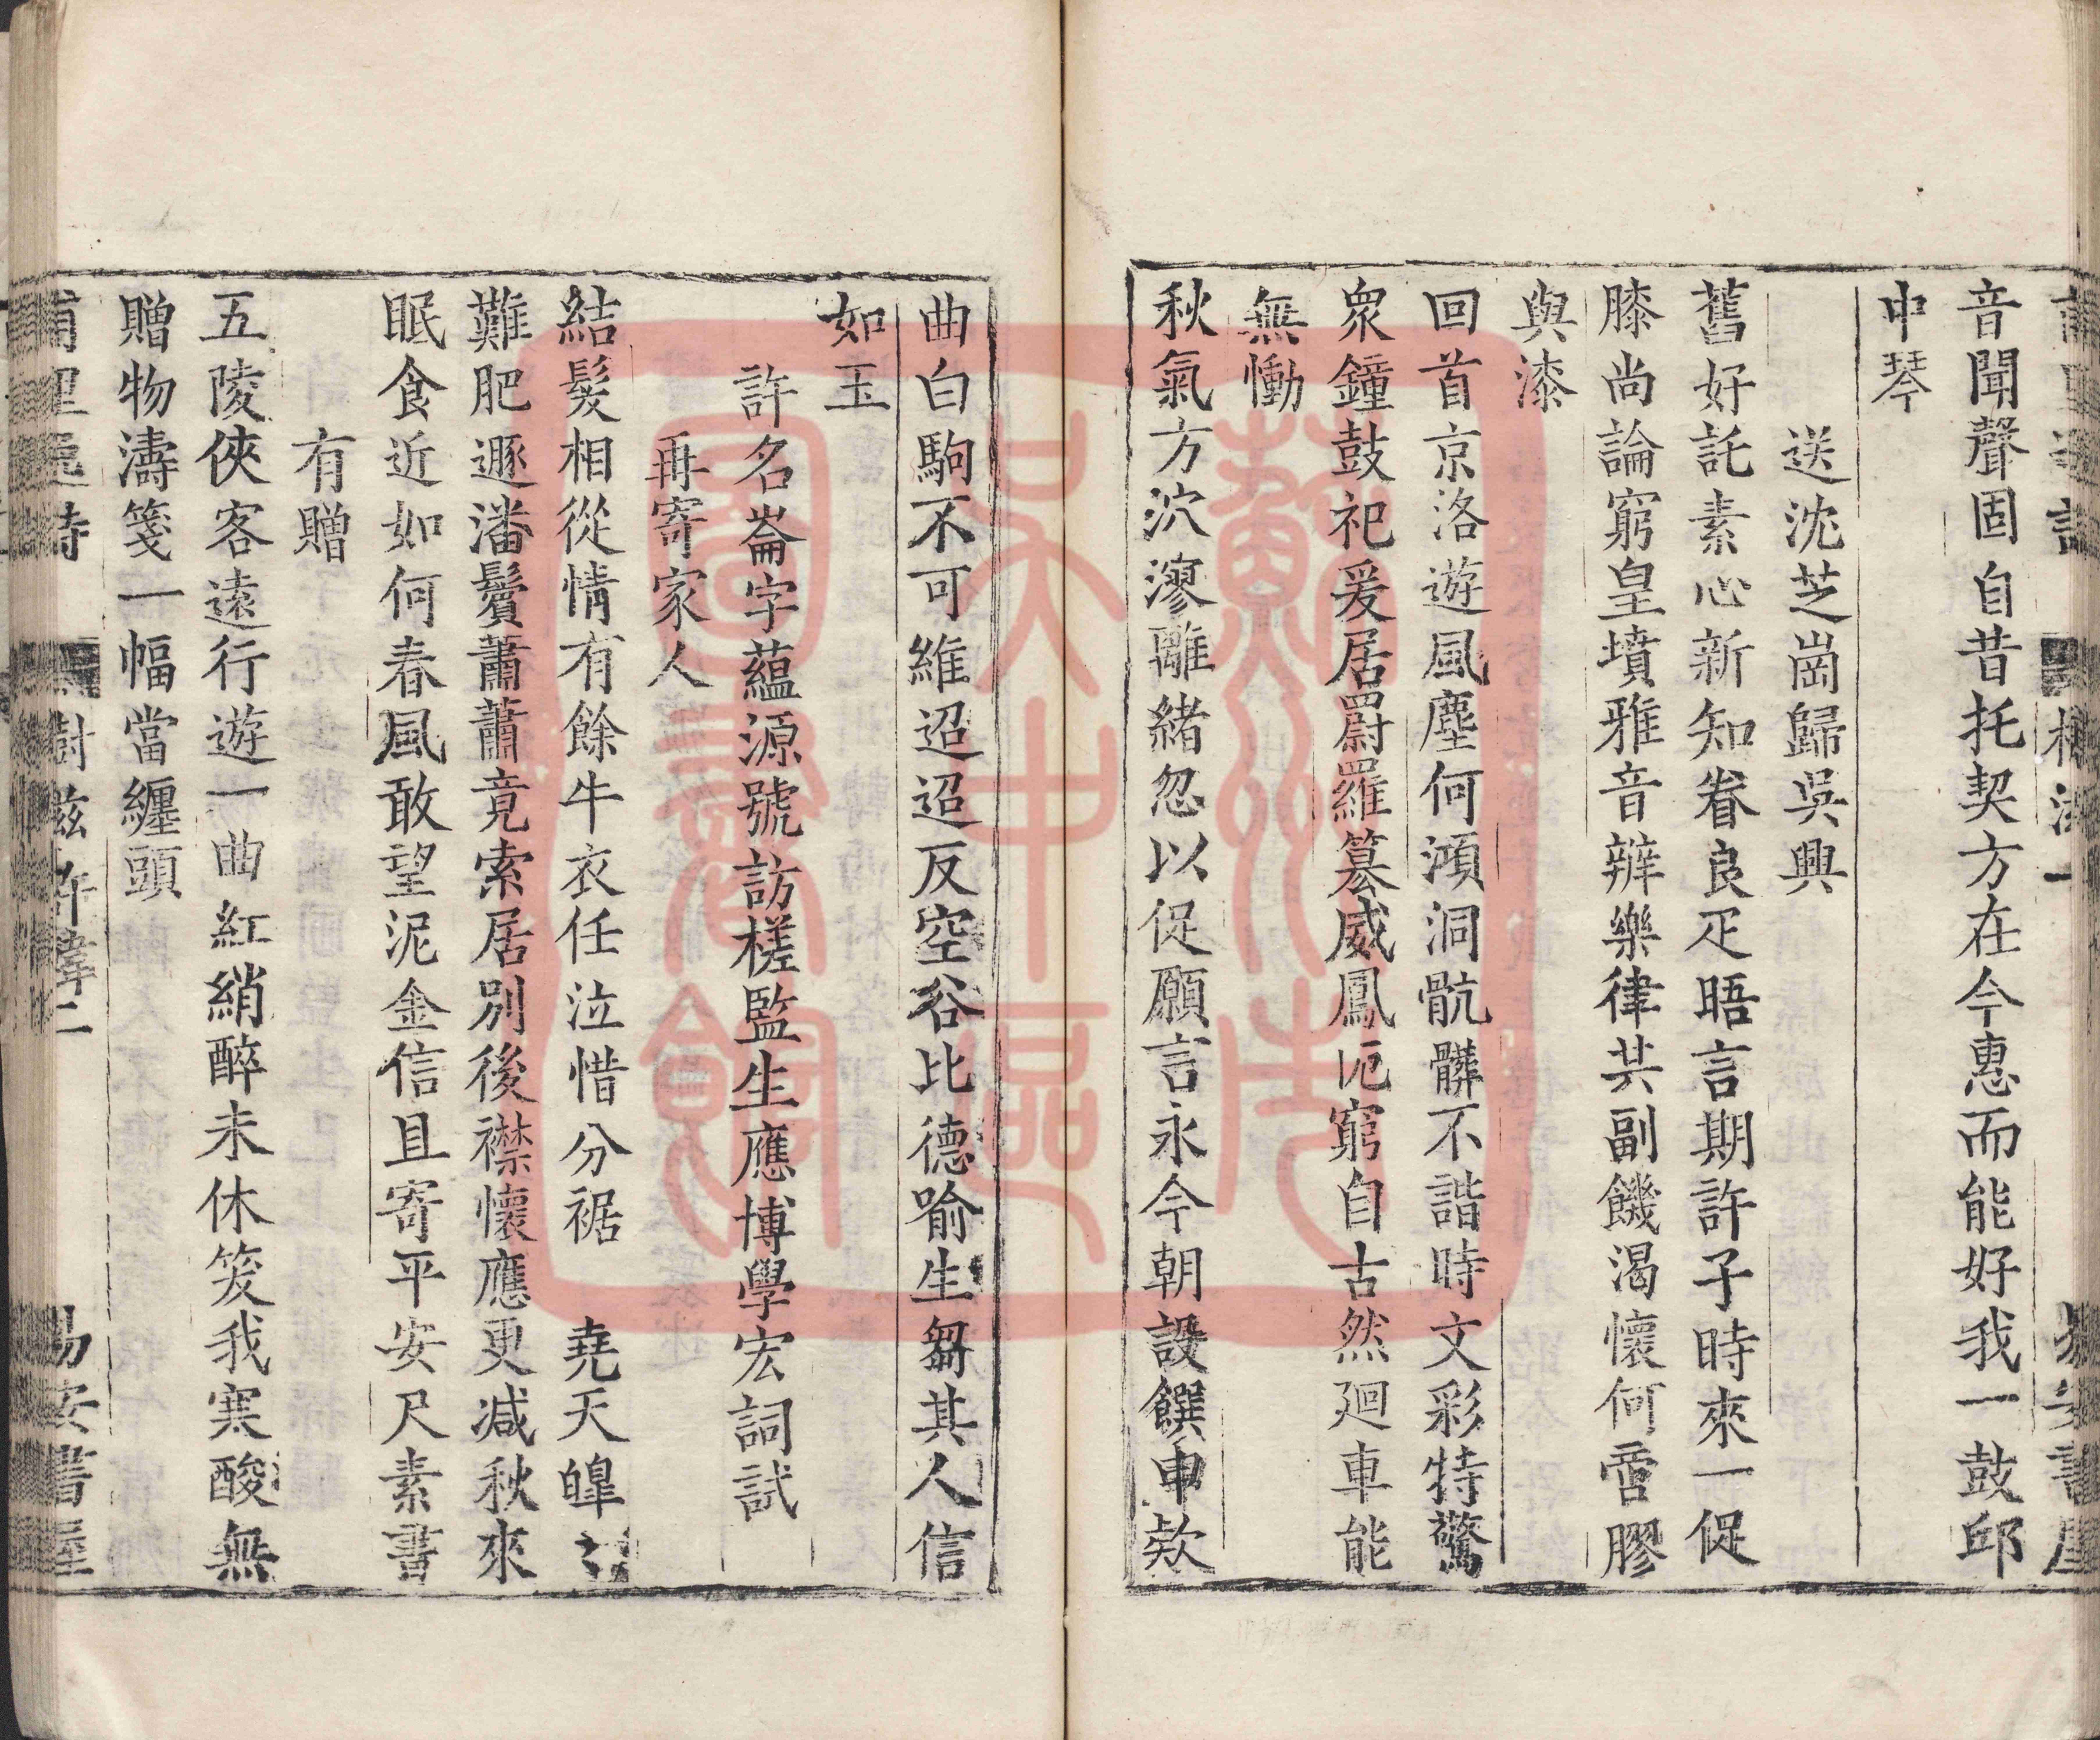 音聞聲固自昔托契方在今惠而能好我一鼓邱
中琴
送沈芝崗歸吳興
舊好託素心新知眷良疋晤言期許子時來一促
膝尚論窮皇墳雅音辦樂律共副饑渴懷何啻膠
與漆
回首京洛遊風塵何澒洞骯髒不諧時文彩特驚
衆鐘鼓祀爰居罻羅篡威鳳阨窮自古然廻車能
無慟
秋氣方泬漻離緒忽以促願言永今朝設饌申欵
曲白駒不可維迢迢反空谷比德喻生芻其人信
如玉
許名崙字蘊源號訪槎監生應博學宏詞試
再寄家人
結髮相從情有餘牛衣任泣惜分裾 堯天皥
難肥遯潘鬢蕭蕭竟索居別後襟懷應更減秋來
眠食近如何春風敢望泥金信且寄平安尺素書
有贈
五陵俠客遠行遊一曲紅綃醉未休笑我寒酸無
贈物濤箋一幅當纏頭
甫里逸詩 樹滋 許 二 易安書屋
蘇州市
吳中區
圖書館